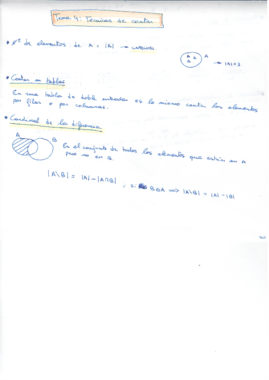 Tema 4: Técnicas de contar
• Nº de elementos de A = |A| → cardinal
A → |A|=3
• Contar en tablas
En una tabla de doble entrada es lo mismo contar los elementos
por filas o por columnas.
• Cardinal de la diferencia
A B
Es el conjunto de todos los elementos que están en A
pero no en B.
|A\B| = |A| - |A∩B| , si B⊆A ⟹ |A\B| = |A| - |B|